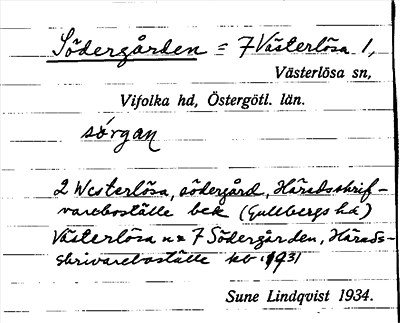 Södergården = 7 Västerlösa 1,
Västerlösa sn,
Vifolka hd, Östergötl. län.
sörgan
2 Westerlösa, södergård, Häradsskrif-
vareboställe bek (Gullbergs hd)
Västerlösa n:o 7 Södergården, Härads-
skrivareboställe kb. 1931
Sune Lindqvist 1934.